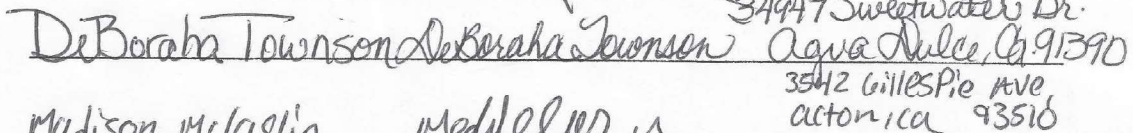 34947 Sweetwater Dr.
DeBoraha Townson DeBoraha Townson Agua Dulce, Ca 91390
3542 Gillespie Ave,
Madison acton, ca 93510